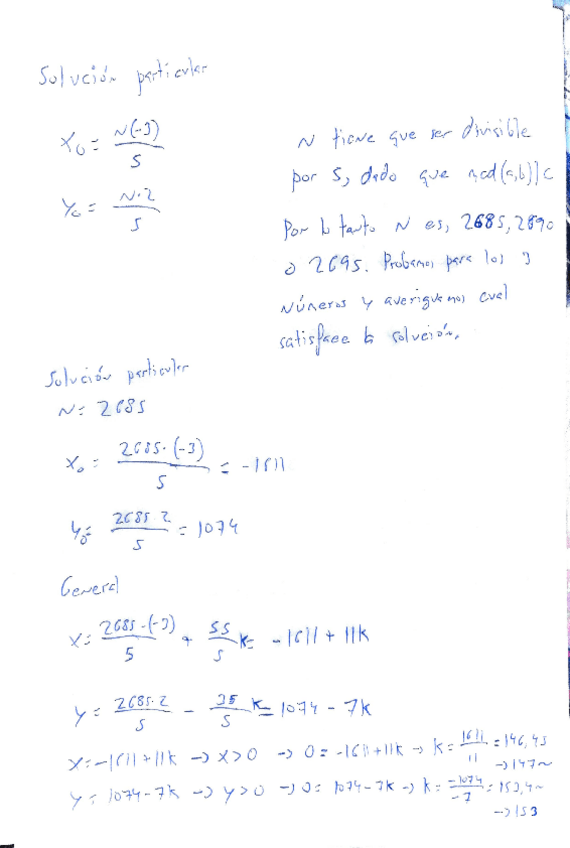 Solución particular
x₀ = N(-3) / 5
y₀ = N·2 / 5
N tiene que ser divisible
por 5, dado que mcd(a,b)|c
Por lo tanto N es, 2685, 2690
o 2695. Probamos para los 3
números y averiguamos cual
satisface la solución.
Solución particular
N = 2685
x₀ = 2685·(-3) / 5 = -1611
y₀ = 2685·2 / 5 = 1074
General
x = 2685·(-3) / 5 + 55/5 k = -1611 + 11k
y = 2685·2 / 5 - 35/5 k = 1074 - 7k
x = -1611 + 11k → x>0 → 0 = -1611 + 11k → k = 1611/11 = 146,45 → 147~
y = 1074 - 7k → y>0 → 0 = 1074 - 7k → k = -1074/-7 = 153,4~ → 153